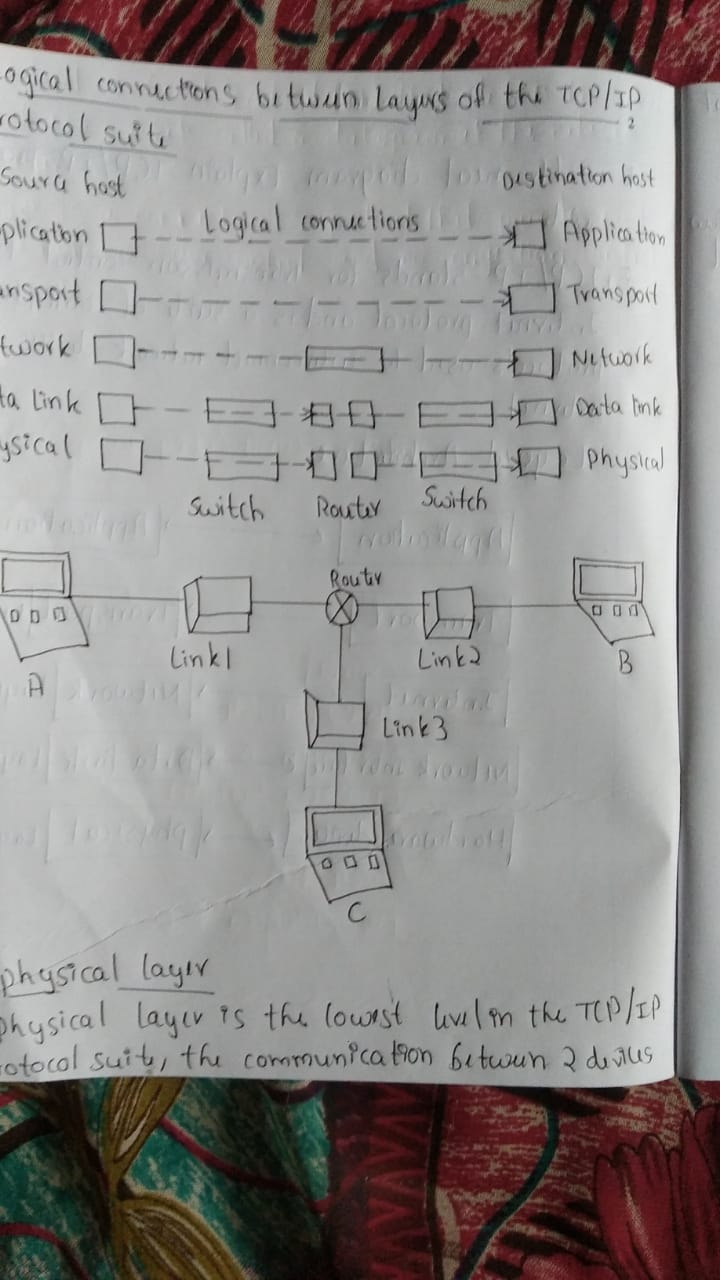 ogical connections between Layers of the TCP/IP
rotocol suite
2
Source host Destination host
plication Logical connections Application
ansport Transport
twork Network
ta Link Data link
ysical Physical
Switch Router Switch
Router
Link1 Link2
A B
Link3
C
physical layer
physical layer is the lowest level in the TCP/IP
rotocol suite, the communication between 2 devices